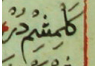 كَلْمِشِمْ دُرْ